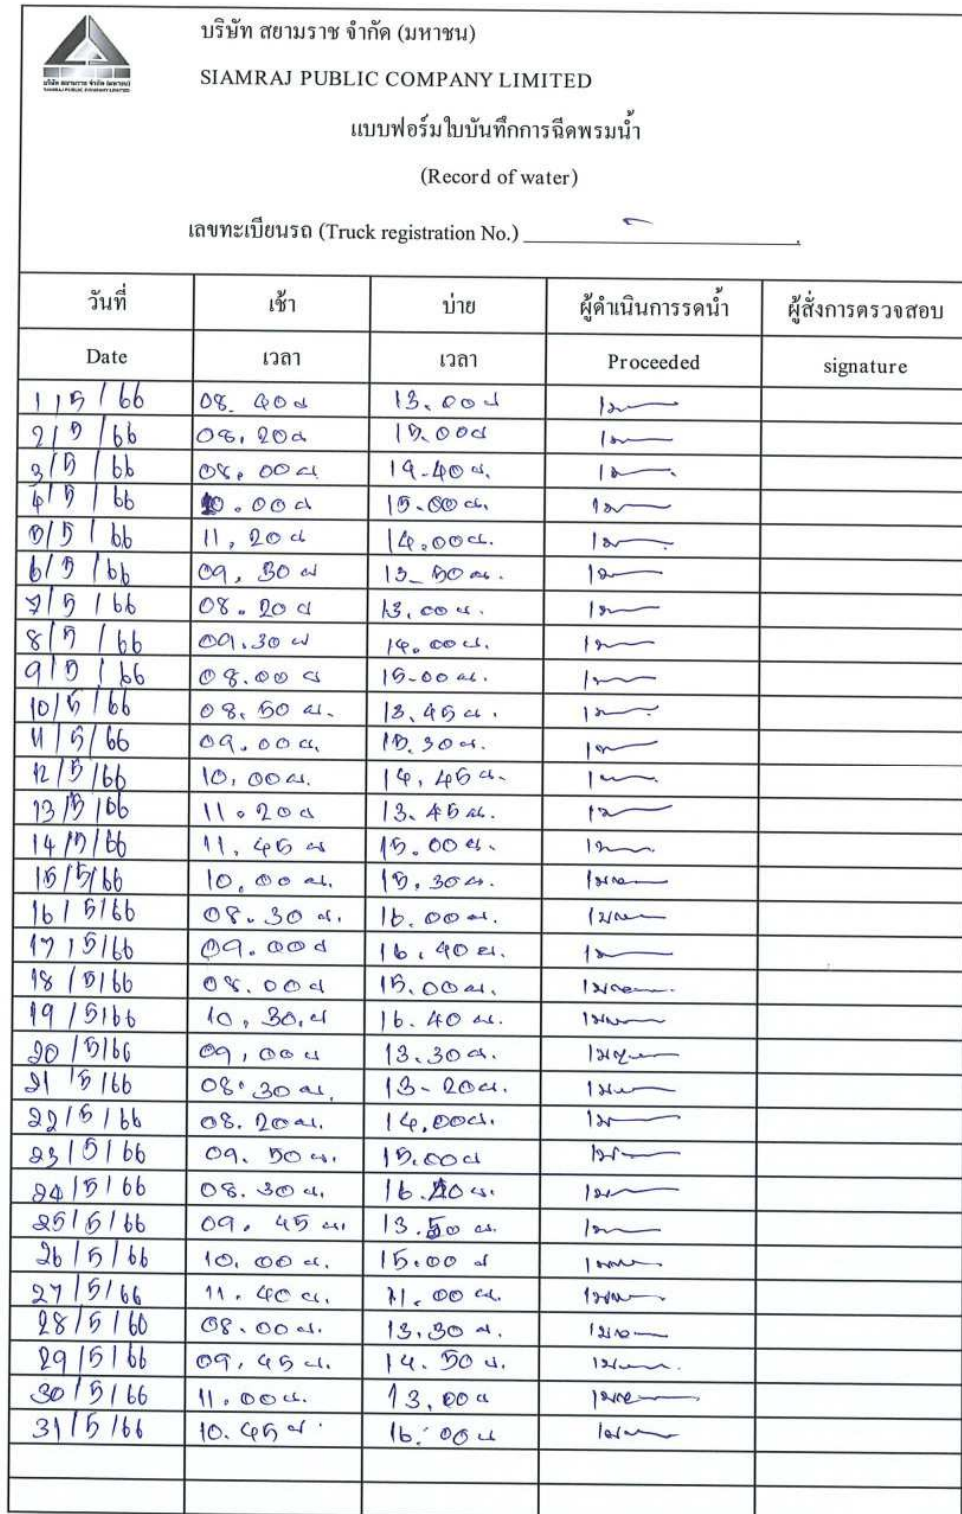 บริษัท สยามราช จำกัด (มหาชน)
บริษัท สยามราช จำกัด (มหาชน)
SIAMRAJ PUBLIC COMPANY LIMITED
SIAMRAJ PUBLIC COMPANY LIMITED
แบบฟอร์มใบบันทึกการฉีดพรมน้ำ
(Record of water)
เลขทะเบียนรถ (Truck registration No.)
วันที่ เช้า บ่าย ผู้ดำเนินการรดน้ำ ผู้สั่งการตรวจสอบ
Date เวลา เวลา Proceeded signature
1/5/66 08.40น 13.00น
2/5/66 08.20น 15.00น
3/5/66 08.00น 14.40น.
4/5/66 10.00น 15.00น.
5/5/66 11.20น 14.00น.
6/5/66 09.30น 13.50น.
7/5/66 08.20น 13.00น.
8/5/66 09.30น 14.00น.
9/5/66 08.00น 15.00น.
10/5/66 08.50น. 13.45น.
11/5/66 09.00น. 15.30น.
12/5/66 10.00น. 14.45น.
13/5/66 11.20น 13.45น.
14/5/66 11.45น 15.00น.
15/5/66 10.00น. 15.30น.
16/5/66 08.30น. 16.00น.
17/5/66 09.00น 16.40น.
18/5/66 08.00น 15.00น.
19/5/66 10.30.น 16.40น.
20/5/66 09.00น 13.30น.
21/5/66 08.30น. 13-20น.
22/5/66 08.20น. 14.00น.
23/5/66 09.50น. 15.00น
24/5/66 08.30น. 16.20น.
25/5/66 09.45น. 13.50น.
26/5/66 10.00น. 15.00น
27/5/66 11.40น. 11.00น.
28/5/60 08.00น. 13.30น.
29/5/66 09.45น. 14.50น.
30/5/66 11.00น. 13.00น
31/5/66 10.45น 16.00น